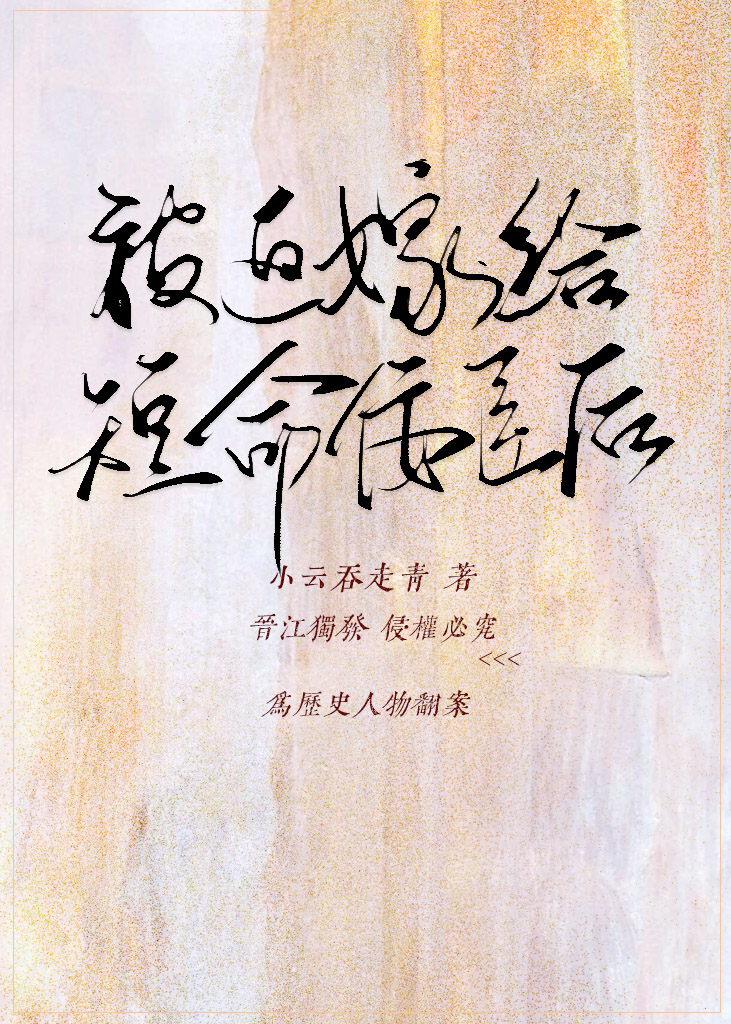 被迫嫁给
短命病医后
小云吞走青 著
晉江獨發 侵權必究
<<<
爲歷史人物翻案